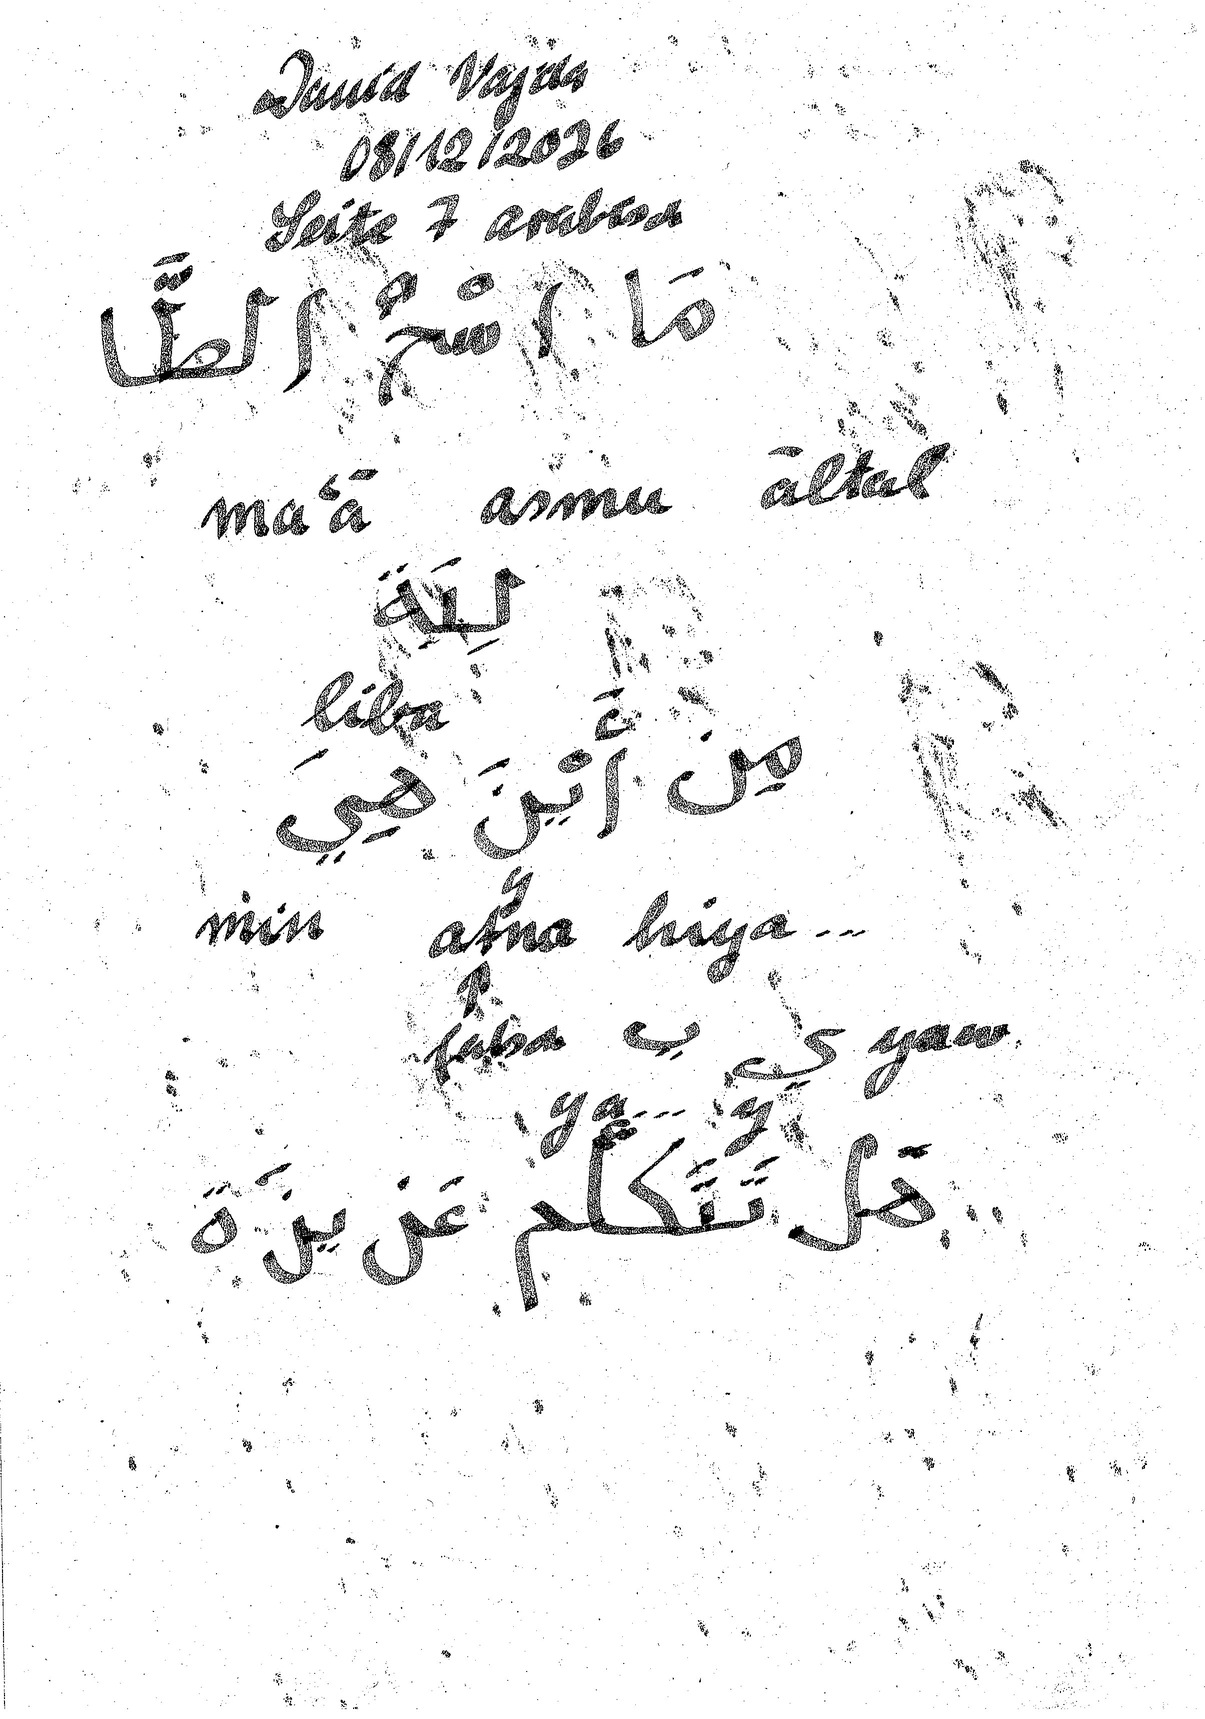 David Vajda
08/12/2026
Seite 7 arabisch
مَا اسْمُ الطَّا
ma'ā asmu āltal
لِبَة
liba
مِن أَيْنَ هِيَ
min ayna hiya...
faba ب ي yaw
ya... y
هَل تَتَكَلَّم عَزيزَة